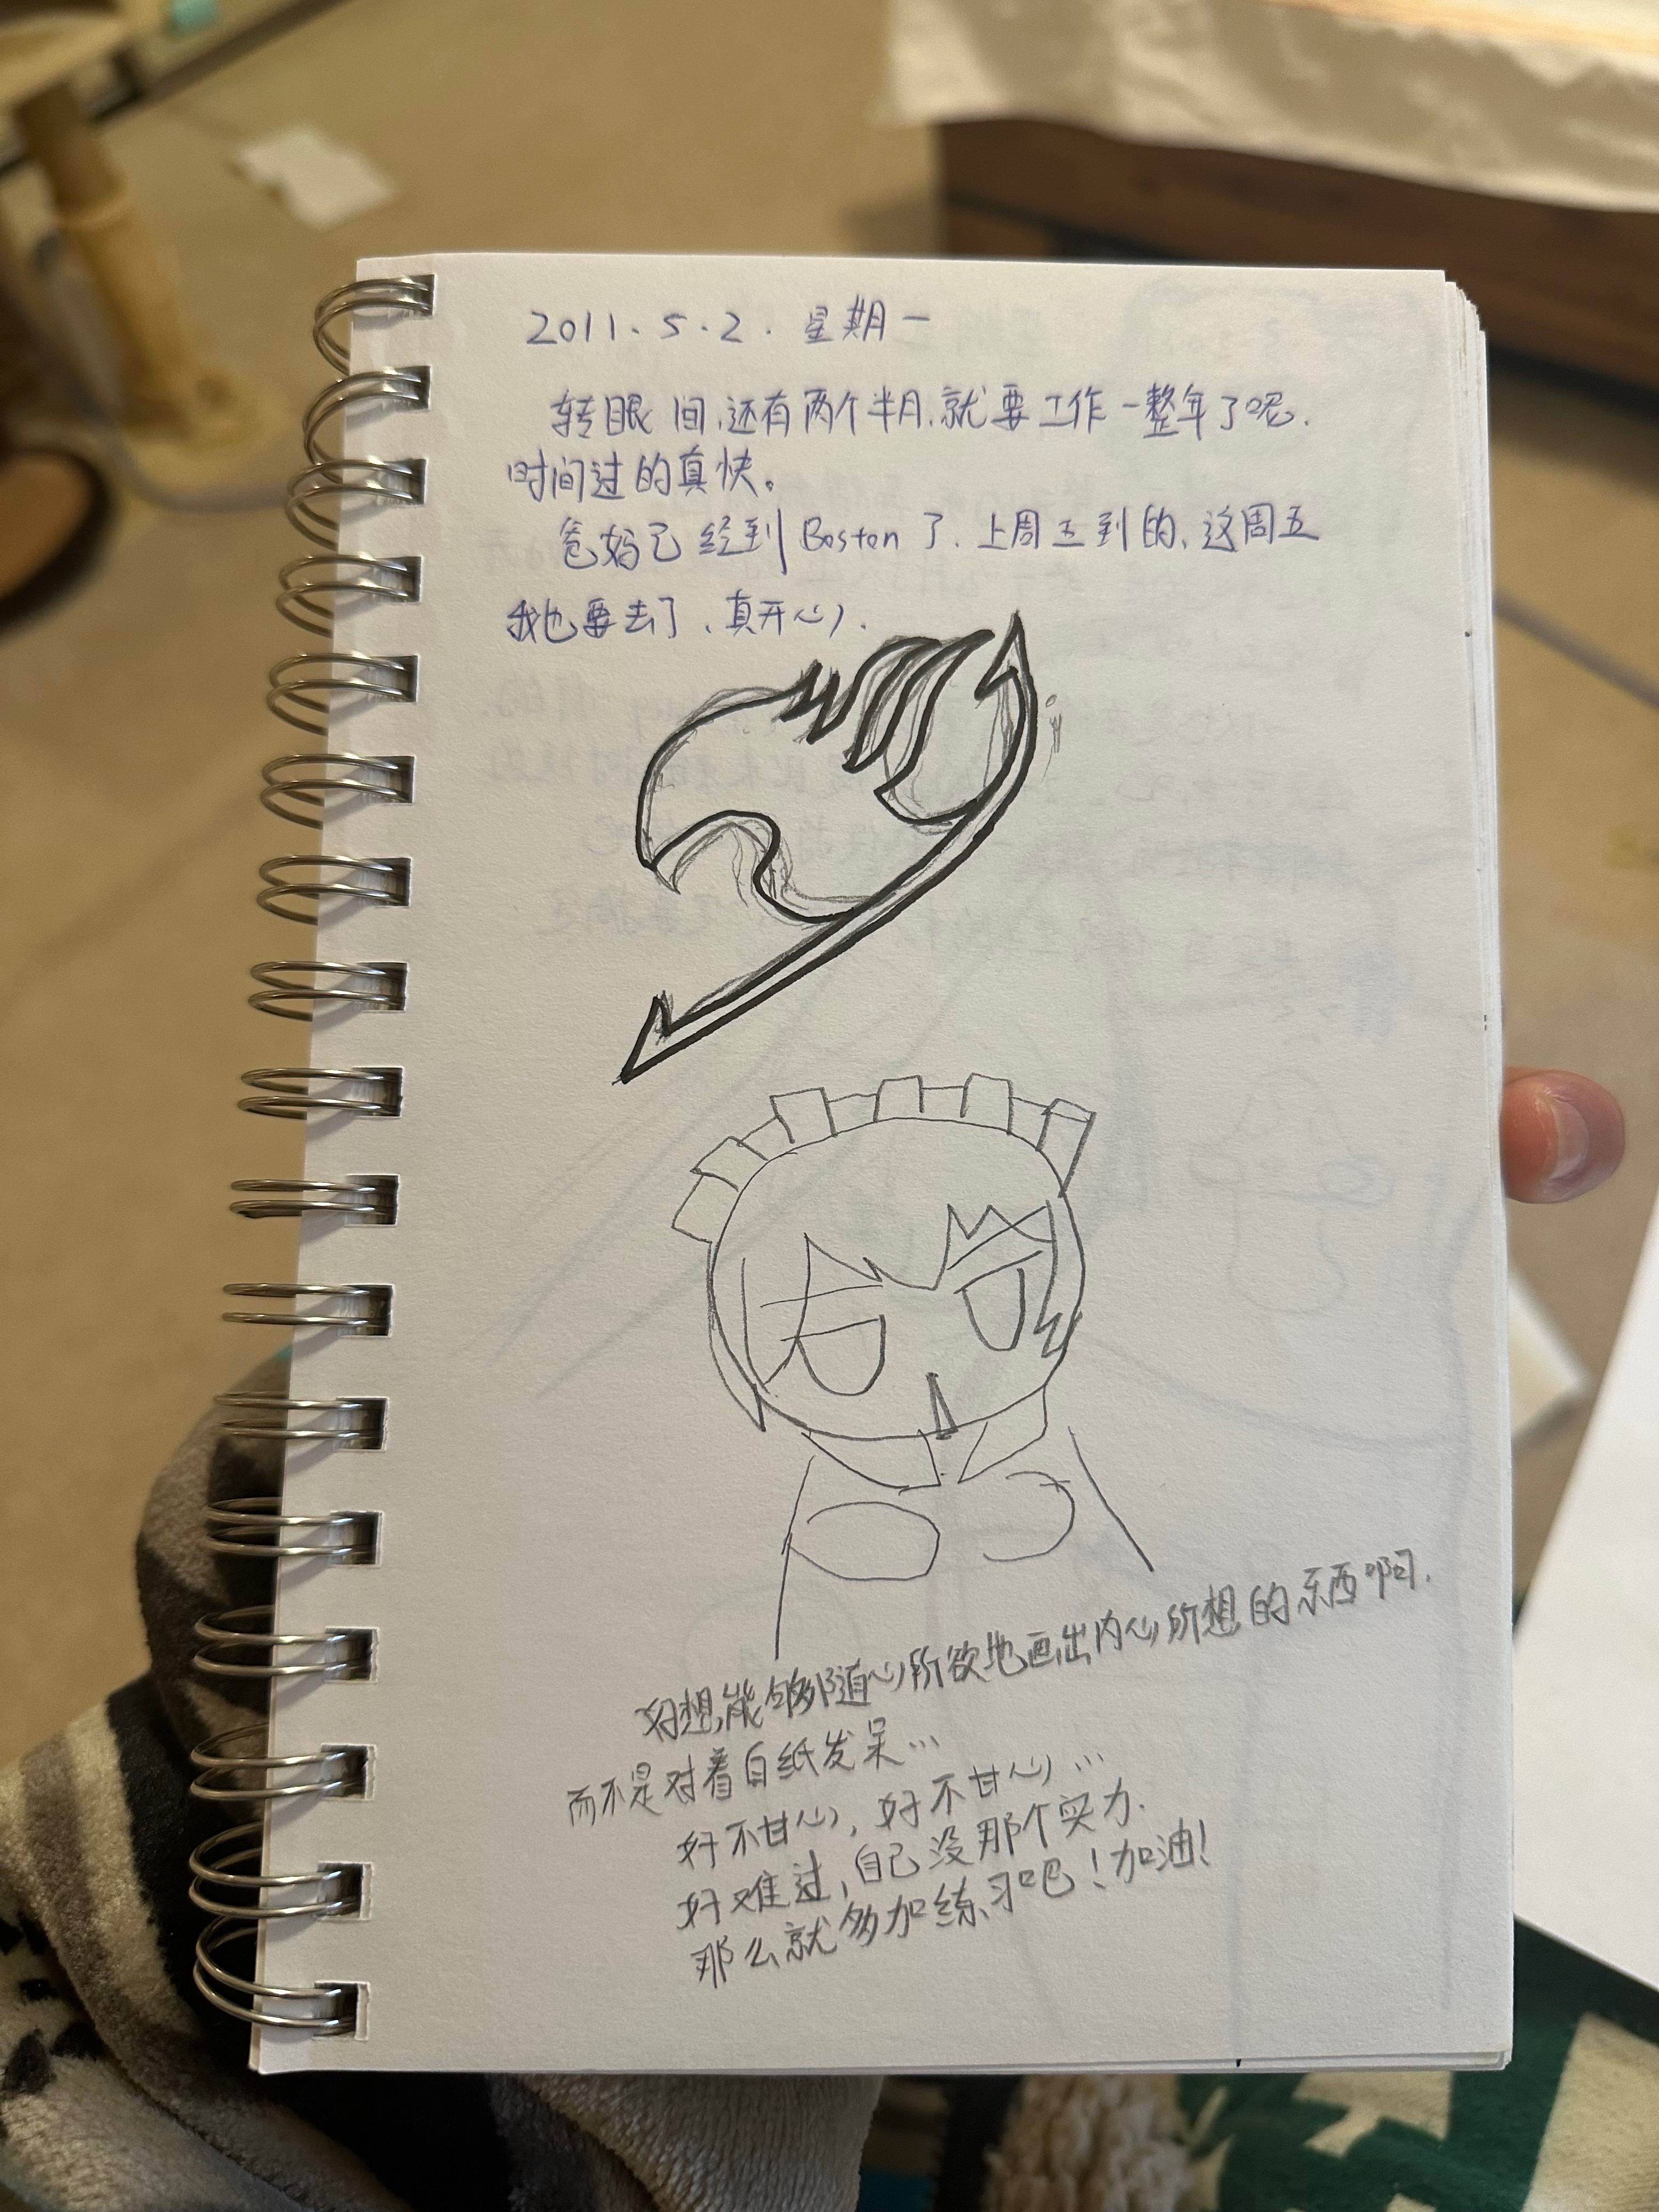 2011.5.2. 星期一
转眼间,还有两个半月,就要工作一整年了呢.
时间过的真快。
爸妈已经到Boston了.上周五到的,这周五
我也要去了、真开心.
好想能够随心所欲地画出内心所想的东西啊.
而不是对着白纸发呆...
好不甘心,好不甘心...
好难过,自己没那个实力.
那么就多加练习吧!加油!